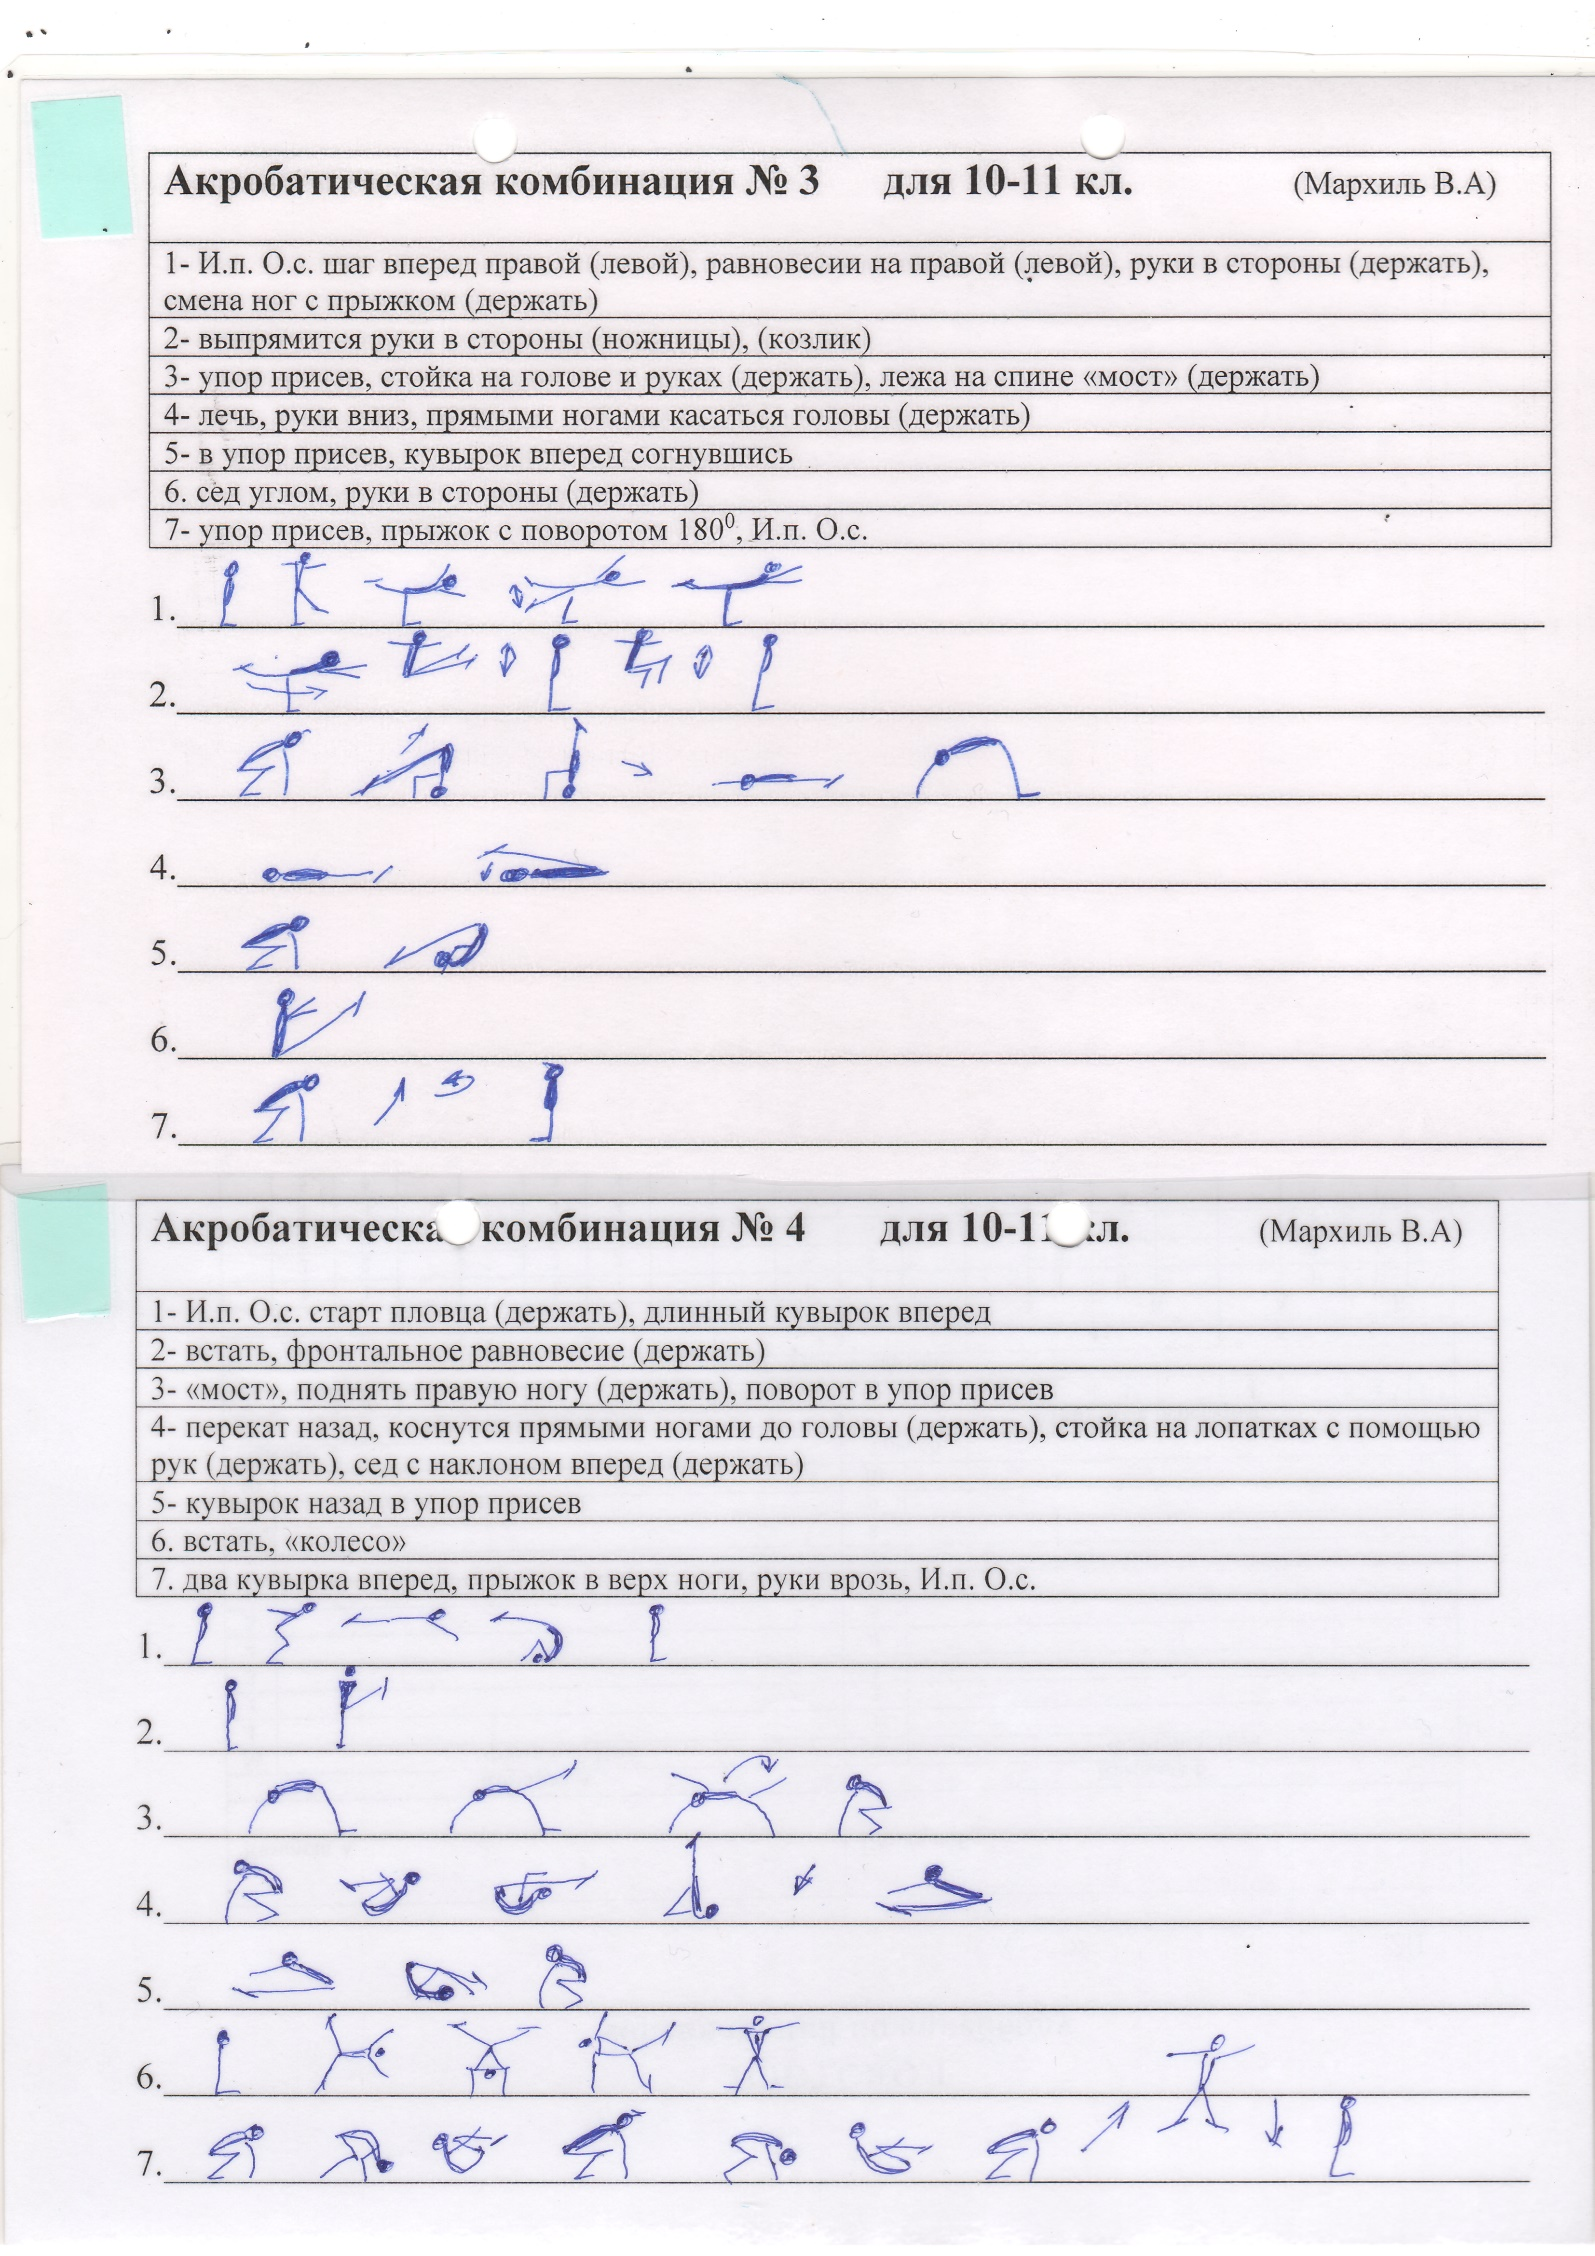 Акробатическая комбинация № 3 для 10-11 кл. (Мархиль В.А)
1- И.п. О.с. шаг вперед правой (левой), равновесии на правой (левой), руки в стороны (держать),
смена ног с прыжком (держать)
2- выпрямится руки в стороны (ножницы), (козлик)
3- упор присев, стойка на голове и руках (держать), лежа на спине «мост» (держать)
4- лечь, руки вниз, прямыми ногами касаться головы (держать)
5- в упор присев, кувырок вперед согнувшись
6. сед углом, руки в стороны (держать)
7- упор присев, прыжок с поворотом 180⁰, И.п. О.с.
1.
2.
3.
4.
5.
6.
7.
Акробатическа комбинация № 4 для 10-11 кл. (Мархиль В.А)
1- И.п. О.с. старт пловца (держать), длинный кувырок вперед
2- встать, фронтальное равновесие (держать)
3- «мост», поднять правую ногу (держать), поворот в упор присев
4- перекат назад, коснутся прямыми ногами до головы (держать), стойка на лопатках с помощью
рук (держать), сед с наклоном вперед (держать)
5- кувырок назад в упор присев
6. встать, «колесо»
7. два кувырка вперед, прыжок в верх ноги, руки врозь, И.п. О.с.
1.
2.
3.
4.
5.
6.
7.